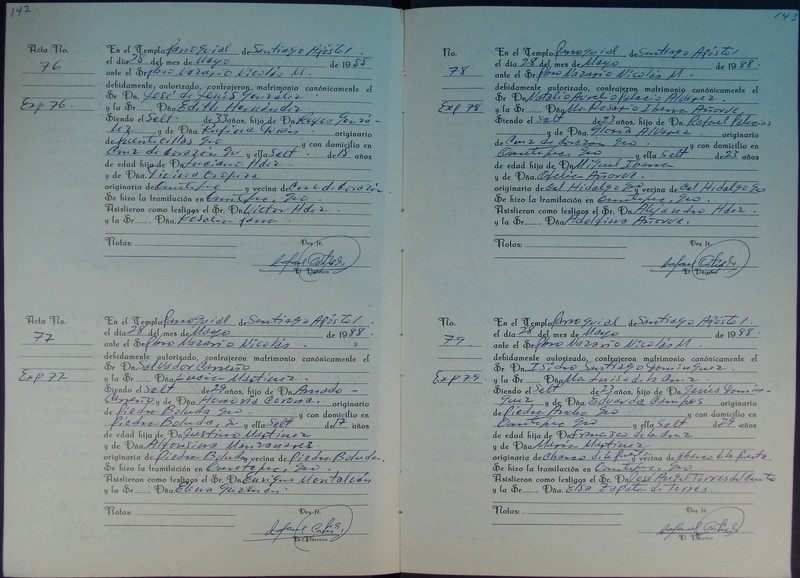 142
Acta No.
76
Exp 76
En el Templo Parroquial de Santiago Apóstol
el día 28 del mes de Mayo de 1988
ante el Sr. Pbro Nazario Nicolás M.
debidamente autorizado, contrajeron matrimonio canónicamente el
Sr. Dn. José de Jesús González
y la Sr. Dña. Edith Hernández
Siendo el Solt de 33 años, hijo de Reyes Gonzá-
lez y de Rufina originario
de con domicilio en
Cruz de Corazón Gro y ella Solt de 18 años
de edad hija de Luciano Hdez
y de Dña.
originaria de Ometepec y vecina de Cruz de Corazón
Se hizo la tramitación en Ometepec, Gro.
Asistieron como testigos el Sr. Dn. Victor Hdez
y la Sr. Dña.
Notas:
Doy fe.
El Párroco
Acta No.
77
Exp 77
En el Templo Parroquial de Santiago Apóstol
el día 28 del mes de Mayo de 1988
ante el Sr. Pbro Nazario Nicolás
debidamente autorizado, contrajeron matrimonio canónicamente el
Sr. Dn. Salvador Carreño
y la Sr. Lucia Martinez
Siendo el Solt de 29 años, hijo de Amado
Carreño y de Honoria Corona originario
de Piedra Boluda Gro y con domicilio en
Piedra Boluda, G y ella Solt de 17 años
de edad hija de Justino Martinez
y de Dña. Alfonsina Manzanarez
originaria de Piedra Boluda vecina de Piedra Boluda.
Se hizo la tramitación en Ometepec, Gro.
Asistieron como testigos el Sr. Dn. Enrique Montalván
y la Sr. Dña. Elena Guzmán
Notas:
Doy fe.
El Párroco
143
No.
78
Exp 78
En el Templo Parroquial de Santiago Apóstol
el día 28 del mes de Mayo de 1988.
ante el Sr. Pbro Nazario Nicolás M.
debidamente autorizado, contrajeron matrimonio canónicamente el
Sr. Dn. Natalio Aurelio Palacio Alvarez
y la Sr. Dña. Ma Rosario Ibarra Añorve.
Siendo el Solt de 23 años, hijo de Rafael Palacios
y de Gloria Alvarez originario
de Cruz de Corazón Gro. y con domicilio en
Ometepec, Gro y ella Solt de 23 años
de edad hija de Miguel Ibarra
y de Dña. Ofelia Añorve.
originaria de Cal Hidalgo Gro y vecina de Cal Hidalgo Gro
Se hizo la tramitación en Ometepec, Gro.
Asistieron como testigos el Sr. Dn. Alejandro Hdez.
y la Sr. Dña. Adolfina Añorve.
Notas:
Doy fe.
El Párroco
No.
79
Exp 79
En el Templo Parroquial de Santiago Apóstol
el día 28 del mes de Mayo de 1988.
ante el Sr. Pbro Nazario Nicolás M.
debidamente autorizado, contrajeron matrimonio canónicamente el
Sr. Dn. Isidro Santiago Dominguez
y la Sr. Dña. Ma Luisa de la Cruz
Siendo el Solt de 23 años, hijo de Jesús Domin-
guez y de Eduarda Campos originario
de Piedra Ancha Gro y con domicilio en
Ometepec Gro y ella Solt de 29 años
de edad hija de Francisco de la Cruz
y de Dña. Maria Martinez
originaria de y vecina de
Se hizo la tramitación en Ometepec, Gro.
Asistieron como testigos el Sr. Dn. José Angel Torres
y la Sr. Dña. Elsa Zapata de Torres.
Notas:
Doy fe.
El Párroco